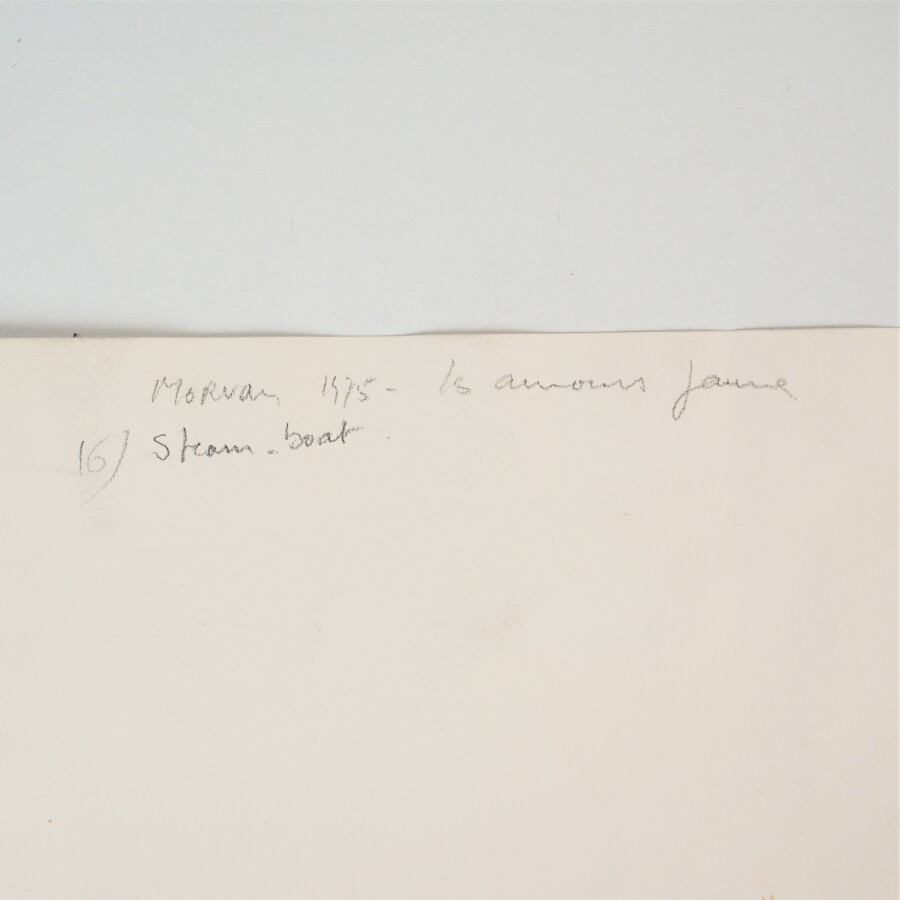 Morvan 1975 - les amours jaune
16) Steam-boat